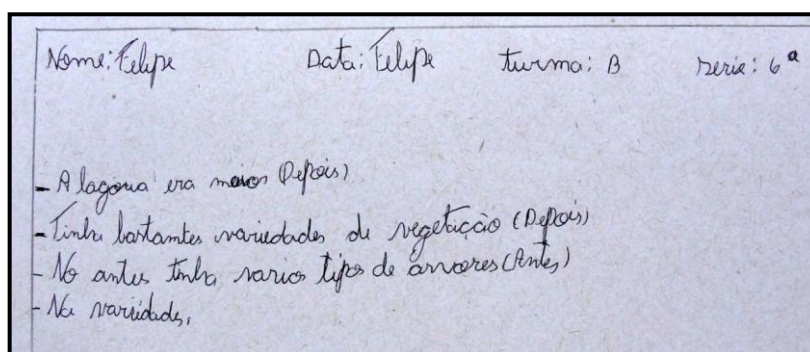 Nome: Felipe Data: Felipe turma: B serie: 6ª
- A lagoua era maior (Depois)
- Tinha bastantes variedades de vegetação (Depois)
- No antes tinha varios tipos de arvores (Antes)
- Na variedades,